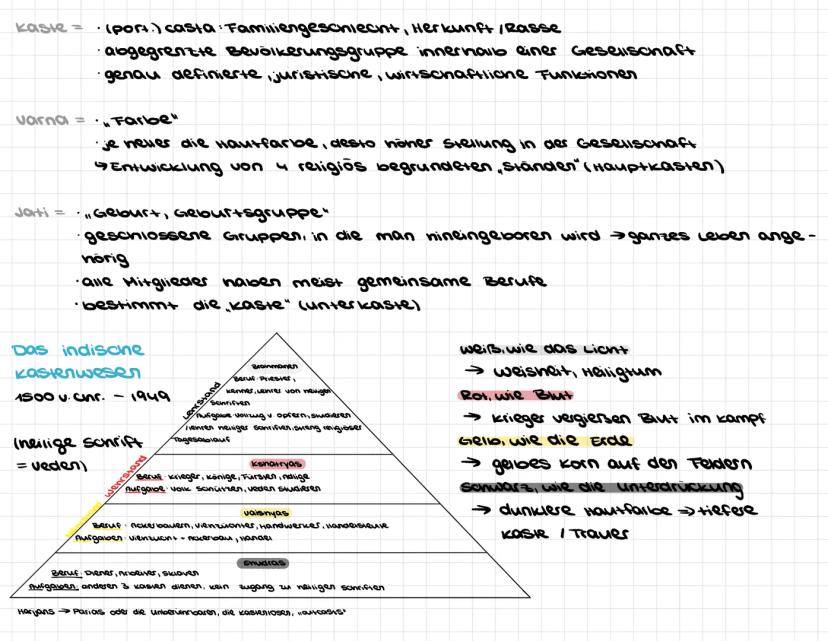 Kaste = · (port.) casta: Familiengeschlecht, Herkunft / Rasse
· abgegrenzte Bevölkerungsgruppe innerhalb einer Gesellschaft
· genau definierte, juristische, wirtschaftliche Funktionen
Varna = · „Farbe“
· je heller die Hautfarbe, desto höher Stellung in der Gesellschaft
↳ Entwicklung von 4 religiös begründeten „Ständen“ (Hauptkasten)
Jati = · „Geburt, Geburtsgruppe“
· geschlossene Gruppen, in die man hineingeboren wird → ganzes Leben ange-
hörig
· alle Mitglieder haben meist gemeinsame Berufe
· bestimmt die „Kaste“ (Unterkaste)
Das indische
Kastenwesen
1500 v. Chr. – 1949
(heilige Schrift
= Veden)
Lehrstand
Brahmanen
Beruf: Priester,
Kenner, Lehrer von heiligen
Schriften
Aufgabe: Vollzug v. Opfern, studieren
/ lehren heiliger Schriften, streng religiöser
Tagesablauf
Wehrstand
Kshatryas
Beruf: Krieger, Könige, Fürsten, Adlige
Aufgabe: Volk schützen, Veden studieren
Vaishyas
Beruf: Ackerbauern, Viehzüchter, Handwerker, Handelsleute
Aufgaben: Viehzucht + Ackerbau, Handel
Shudras
Beruf: Diener, Arbeiter, Sklaven
Aufgaben: anderen 3 Kasten dienen, kein Zugang zu heiligen Schriften
Harijans → Parias oder die Unberührbaren, die Kastenlosen, „outcasts“
Weiß, wie das Licht
→ Weisheit, Heiligtum
Rot, wie Blut
→ Krieger vergießen Blut im Kampf
Gelb, wie die Erde
→ gelbes Korn auf den Feldern
Schwarz, wie die Unterdrückung
→ dunklere Hautfarbe → tiefere
Kaste / Trauer